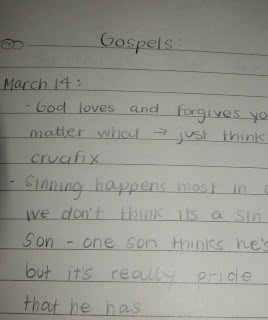 Gospels:
March 14:
- God loves and forgives yo
matter what → just think
crucifix
- Sinning happens most in
we don't think its a sin
Son - one son thinks he's
but it's really pride
that he has